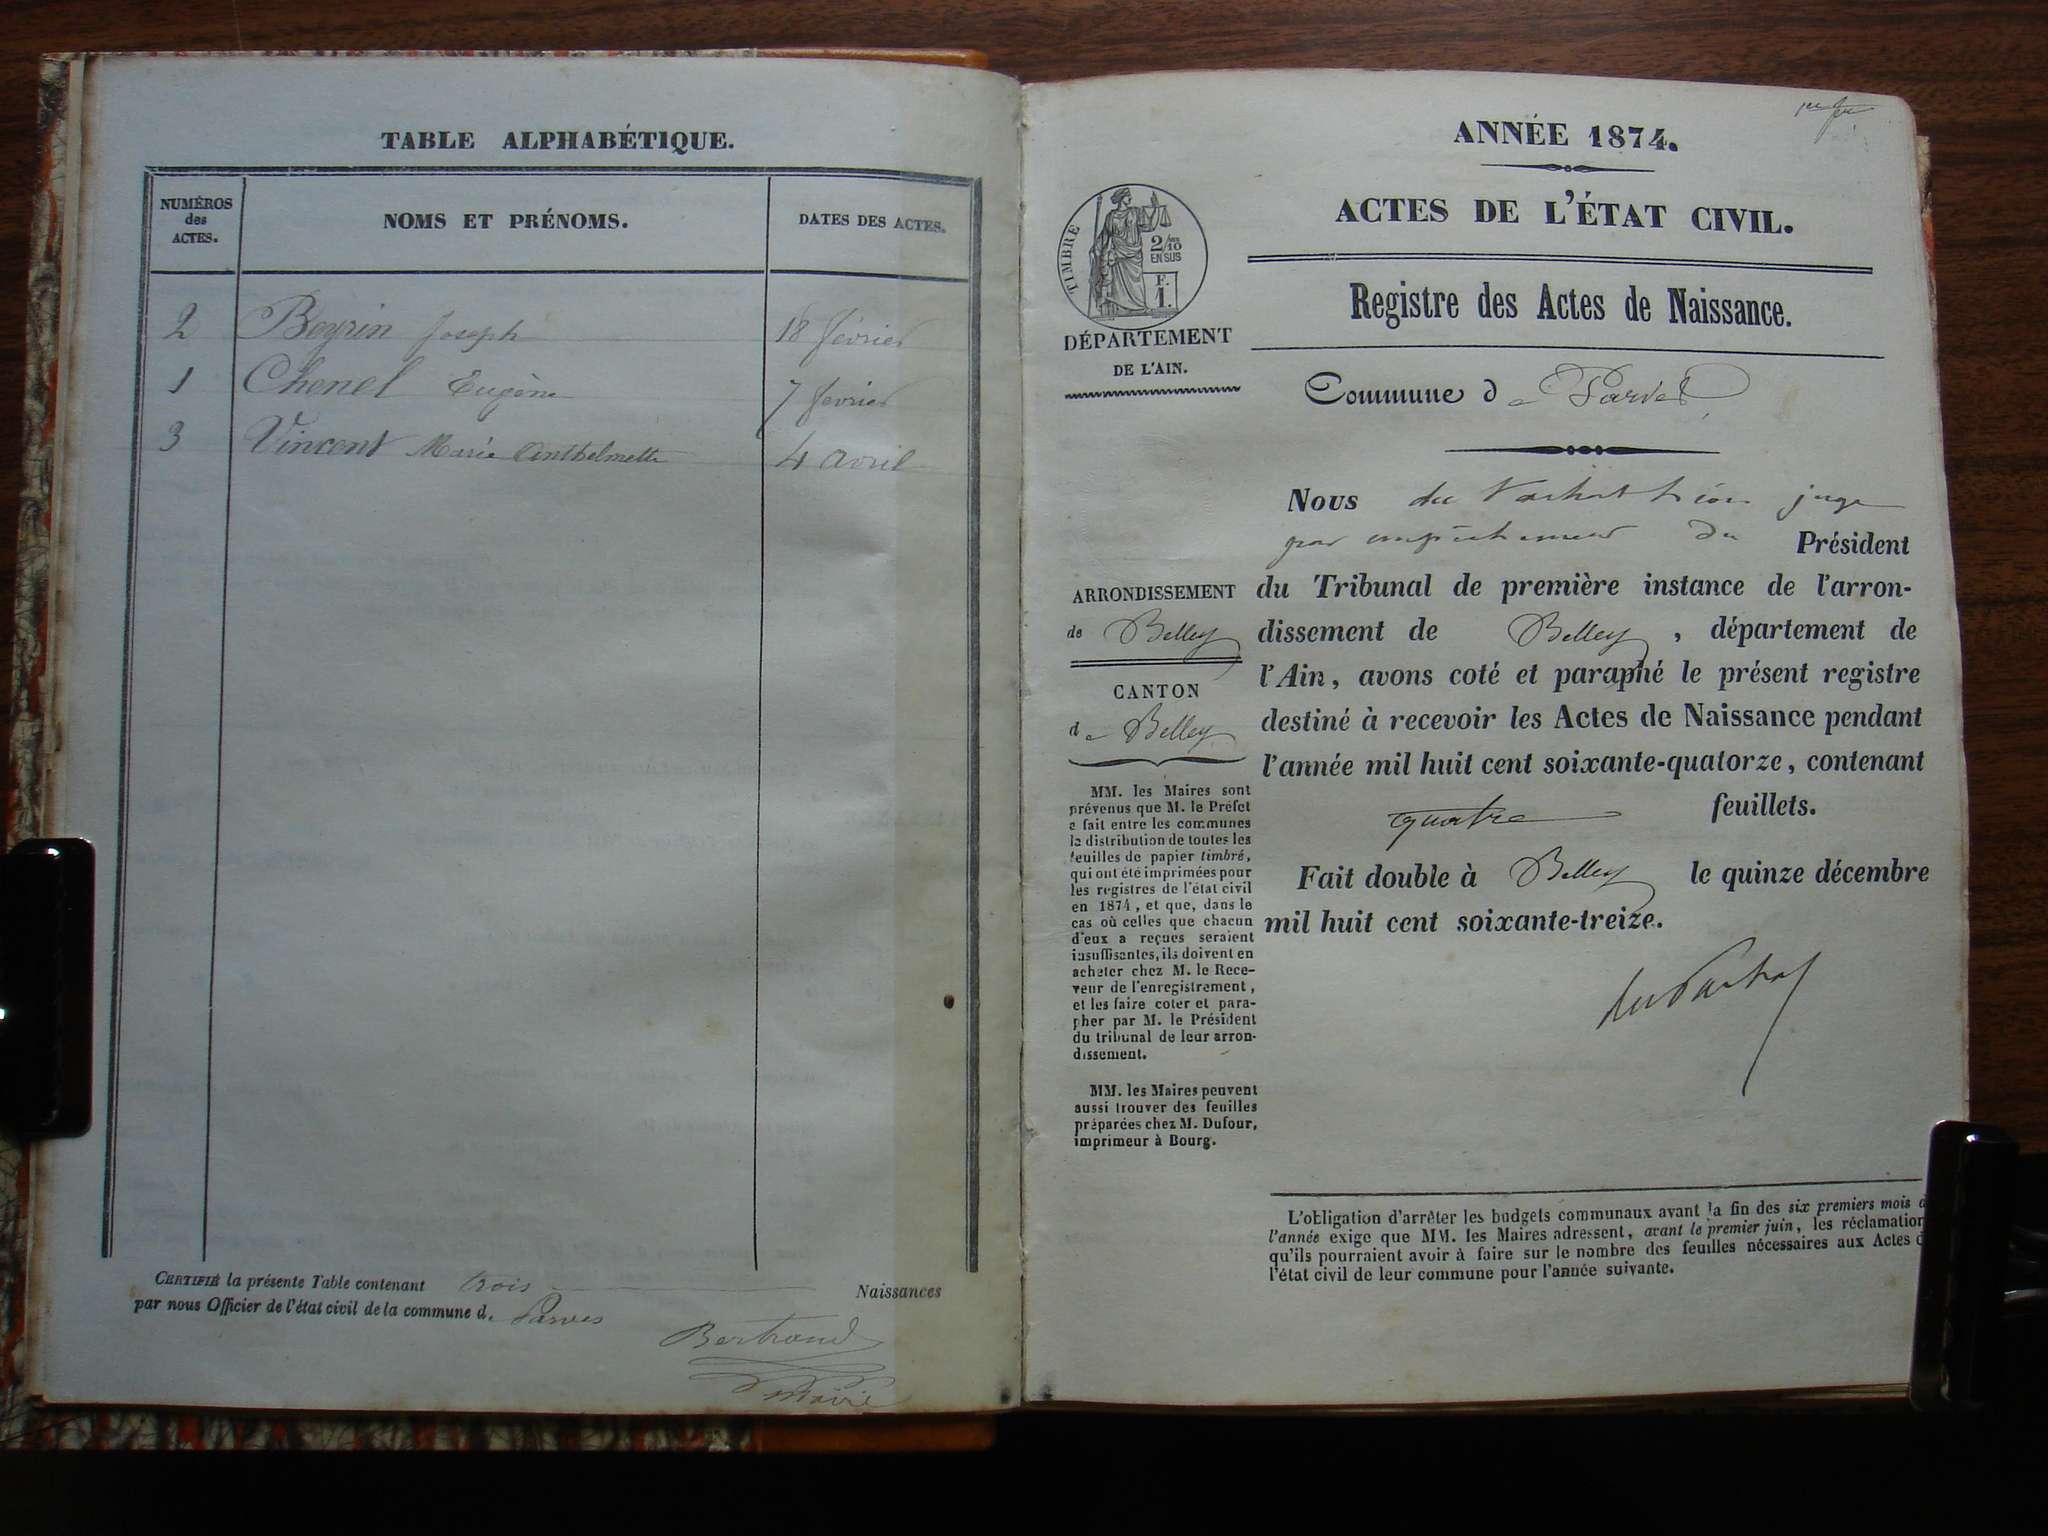 TABLE ALPHABÉTIQUE.
NUMÉROS
des
ACTES.
NOMS ET PRÉNOMS.
DATES DES ACTES.
2 Beyrin Joseph 18 février
1 Chenel Eugène 7 février
3 Vincent Marie Anthelmette 4 avril
CERTIFIÉ la présente Table contenant trois Naissances
par nous Officier de l'état civil de la commune d. Parves
Bertrand
Maire
ANNÉE 1874.
ACTES DE L'ÉTAT CIVIL.
Registre des Actes de Naissance.
TIMBRE
2/10
EN SUS
F.
1.
DÉPARTEMENT
DE L'AIN.
Commune de Parves
ARRONDISSEMENT
de Belley
CANTON
de Belley
MM. les Maires sont
prévenus que M. le Préfet
a fait entre les communes
la distribution de toutes les
feuilles de papier timbré,
qui ont été imprimées pour
les registres de l'état civil
en 1874, et que, dans le
cas où celles que chacun
d'eux a reçues seraient
insuffisantes, ils doivent en
acheter chez M. le Rece-
veur de l'enregistrement,
et les faire coter et para-
pher par M. le Président
du tribunal de leur arron-
dissement.
MM. les Maires peuvent
aussi trouver des feuilles
préparées chez M. Dufour,
imprimeur à Bourg.
Nous du juge
par empêchement du Président
du Tribunal de première instance de l'arron-
dissement de Belley, département de
l'Ain, avons coté et paraphé le présent registre
destiné à recevoir les Actes de Naissance pendant
l'année mil huit cent soixante-quatorze, contenant
quatre feuillets.
Fait double à Belley le quinze décembre
mil huit cent soixante-treize.
L'obligation d'arrêter les budgets communaux avant la fin des six premiers mois d
l'année exige que MM. les Maires adressent, avant le premier juin, les réclamation
qu'ils pourraient avoir à faire sur le nombre des feuilles nécessaires aux Actes d
l'état civil de leur commune pour l'année suivante.